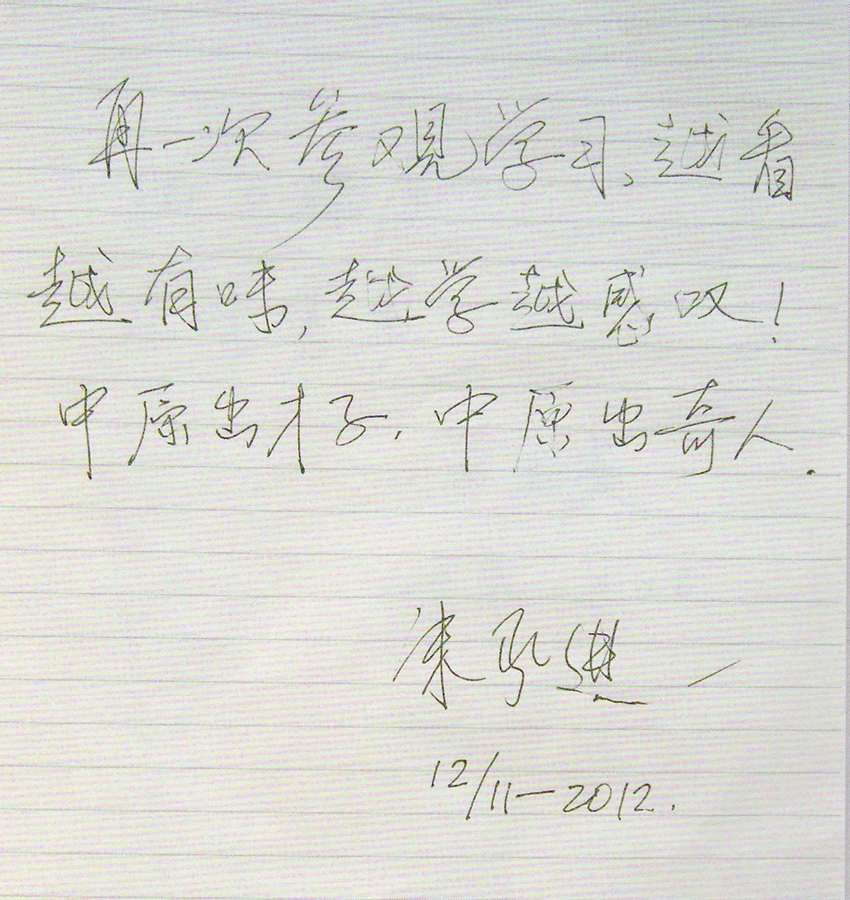 再一次参观学习、越看
越有味,越学越感叹!
中原出才子,中原出奇人.
朱
12/11-2012.